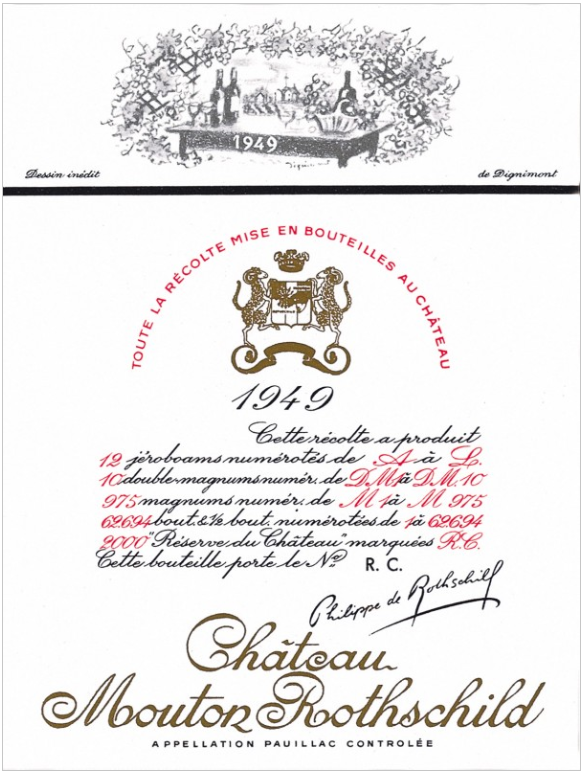 1949
Dignimont
Dessin inédit
de Dignimont
TOUTE LA RÉCOLTE MISE EN BOUTEILLES AU CHÂTEAU
1949
Cette récolte a produit
12 jéroboams numérotés de A à L.
10 double-magnums numér. de D.M 1 à D.M. 10
975 magnums numér. de M 1 à M 975
62694 bout. & ½ bout. numérotées de 1 à 62694
2000 "Réserve du Château" marquées R.C.
Cette bouteille porte le Nº R. C.
Philippe de Rothschild
Château
Mouton Rothschild
APPELLATION PAUILLAC CONTROLÉE